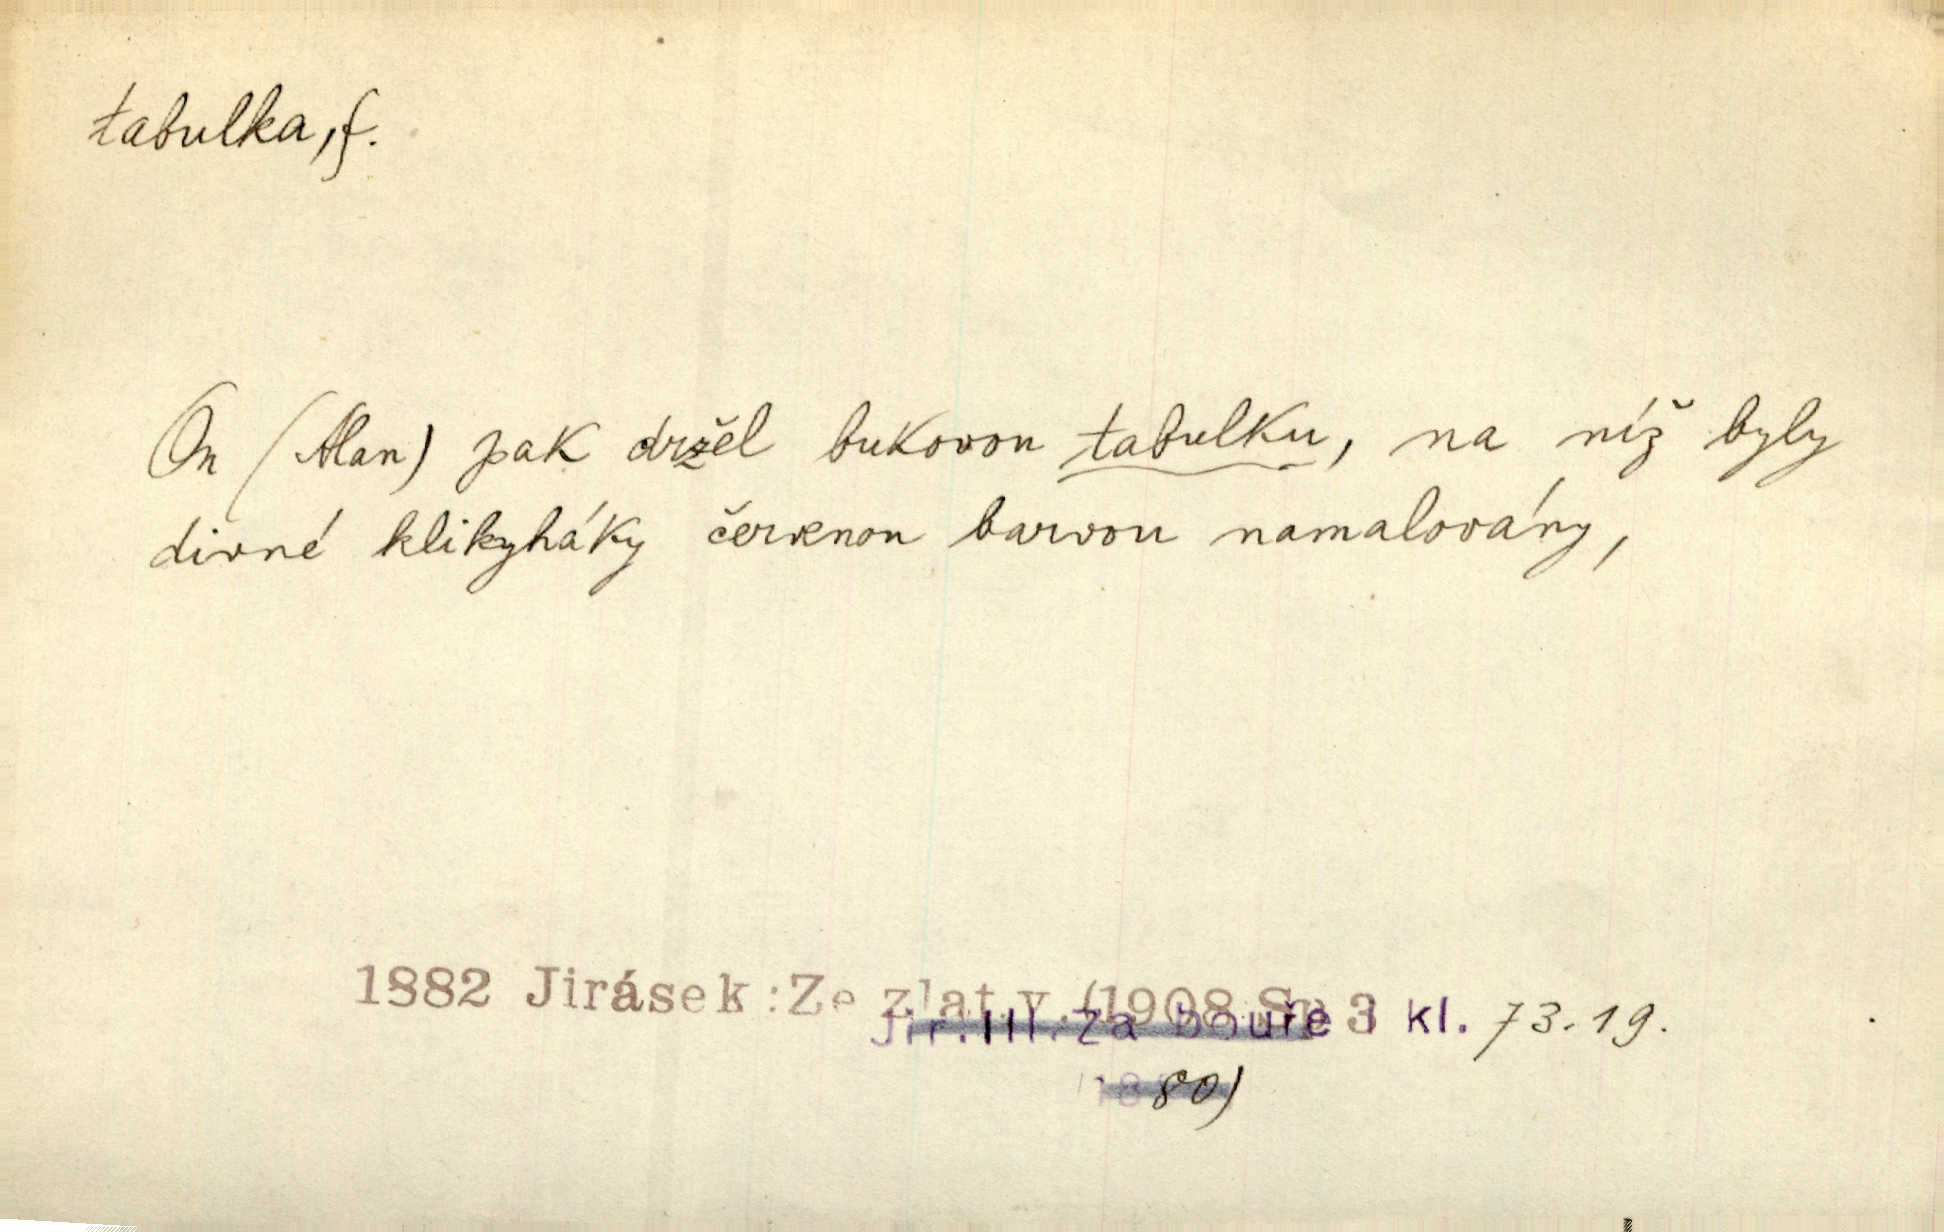 tabulka, f.
On (Alan) pak držel bukovou tabulku, na níž byly
divné klikyháky červenou barvou namalovány,
1882 Jirásek: Ze zlat. v. (1908 Sp 3
Jir. III. Za bouře kl. 73.19.
80)